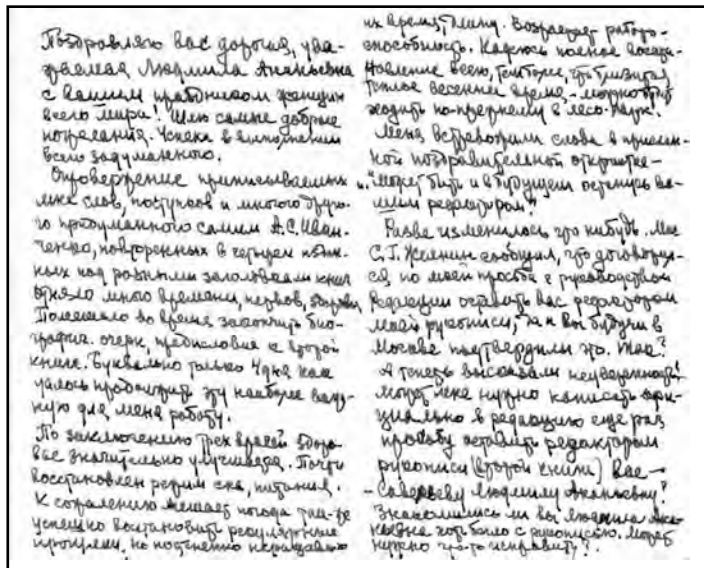 Поздравляю вас дорогая, ува-
жаемая Людмила Ананьевна
с вашим праздником женщин
всего мира! Шлю самые добрые
пожелания. Успеха в выполнении
всего задуманного.
Опровержение приписываемых
мне слов, поступков и многого друго-
го придуманного самим А.С. Иван-
ченко, повторенных в четырех издан-
ных под разными заголовками книг
отняло много времени, нервов, здоровья
Помешало во время закончить био-
графич. очерк, предисловия к второй
книге. Буквально только 4 дня как
удалось продолжить эту наиболее важ-
ную для меня работу.
По заключению трех врачей здоро-
вье значительно улучшается. Почти
восстановлен режим сна, питания.
К сожалению мешает погода так-же
успешно востановить регулярные
прогулки, но постепенно наращиваю
их время, длину. Возрастает работо-
способность. Надеюсь полное восста-
новление всего, тем более, что близится
теплое весеннее время, – можно будет
ходить по-прежнему в лесо-парк.
Меня встревожили слова в прислан-
ной поздравительной открытке –
"Может быть и в будущем останусь ва-
шим редактором"
Разве изменилось что нибудь. Мне
С.Г. сообщил, что договорил-
ся по моей просьбе с руководством
редакции оставить вас редактором
моей рукописи, да и Вы будучи в
Москве подтвердили это. Так?
А теперь высказали неуверенность!
Может мне нужно написать офи-
циально в редакцию еще раз
просьбу оставить редактором
рукописи (второй книги) Вас –
– Савельеву Людмилу Ананьевну?
Знакомились ли вы Людмила Ана-
ньевна хоть бегло с рукописью. Может
нужно что-то исправить?.